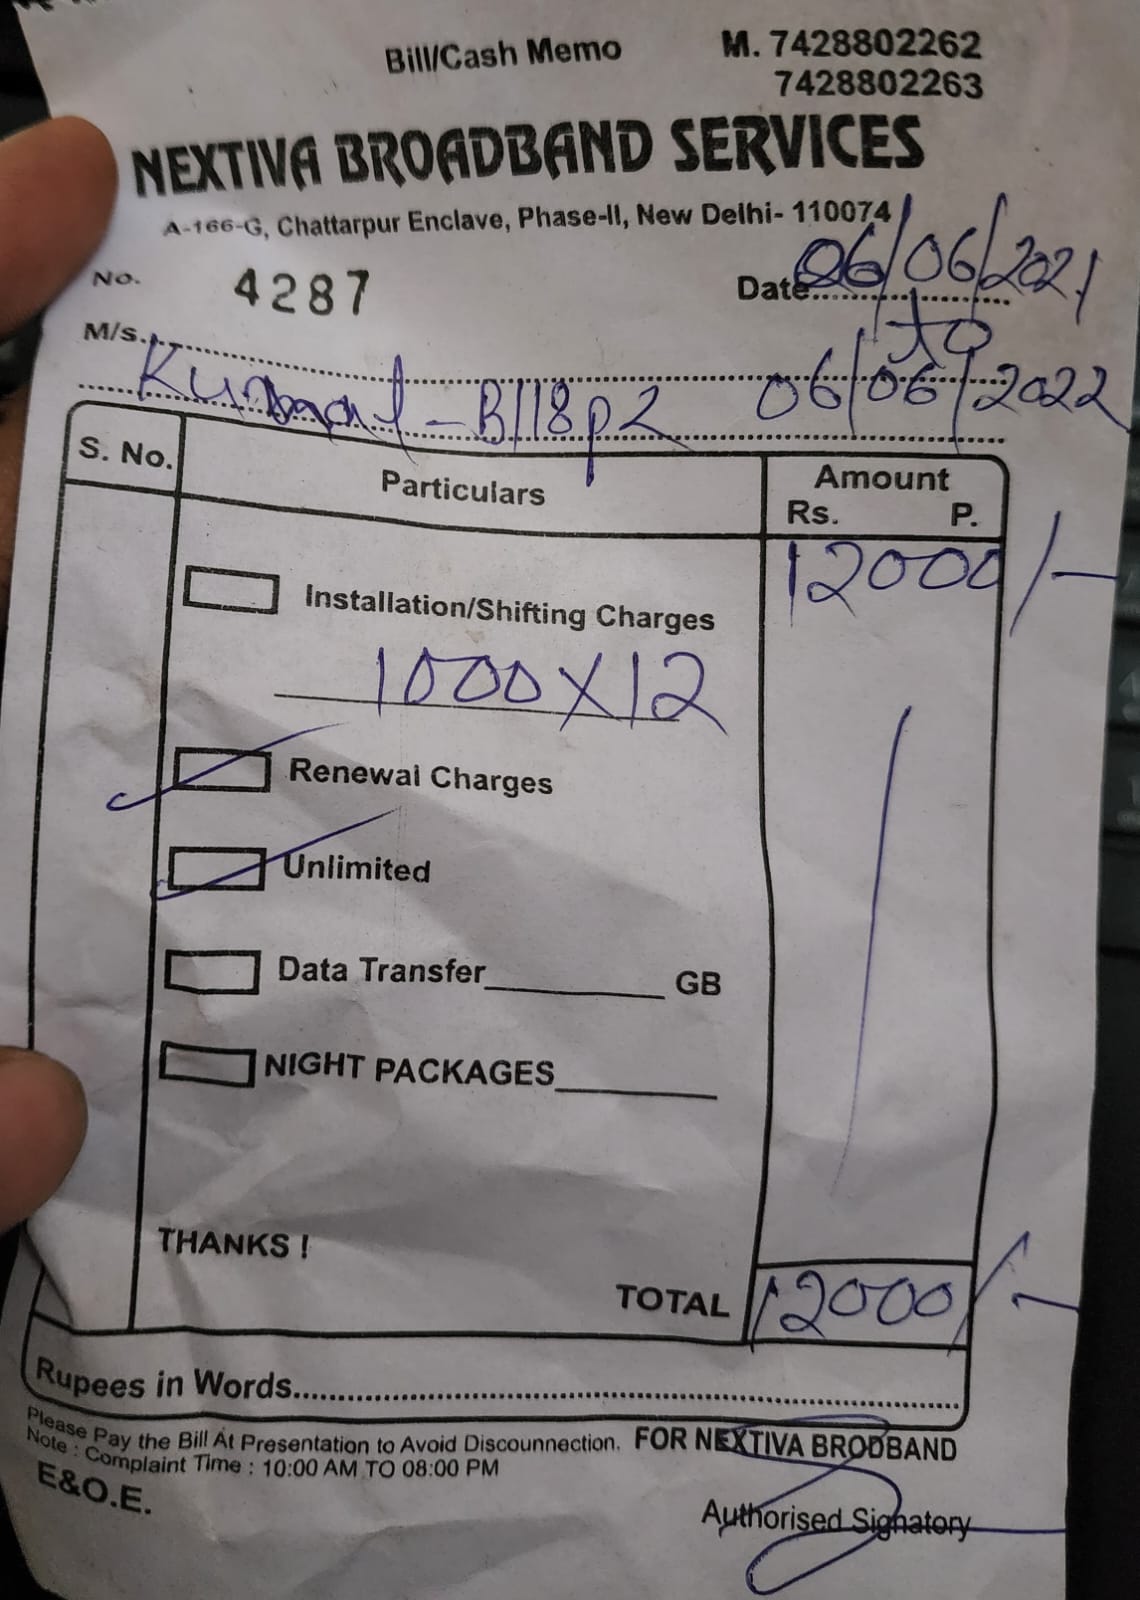 Bill/Cash Memo M. 7428802262
7428802263
NEXTIVA BROADBAND SERVICES
A-166-G, Chattarpur Enclave, Phase-II, New Delhi- 110074
No. 4287 Date 06/06/2021
to
M/s.
B118p2 06/06/2022
S. No. Particulars Amount
Rs. P.
12000/-
Installation/Shifting Charges
1000X12
Renewal Charges
Unlimited
Data Transfer GB
NIGHT PACKAGES
THANKS !
TOTAL 12000/-
Rupees in Words
Please Pay the Bill At Presentation to Avoid Discounnection. FOR NEXTIVA BRODBAND
Note : Complaint Time : 10:00 AM TO 08:00 PM
E&O.E.
Authorised Signatory